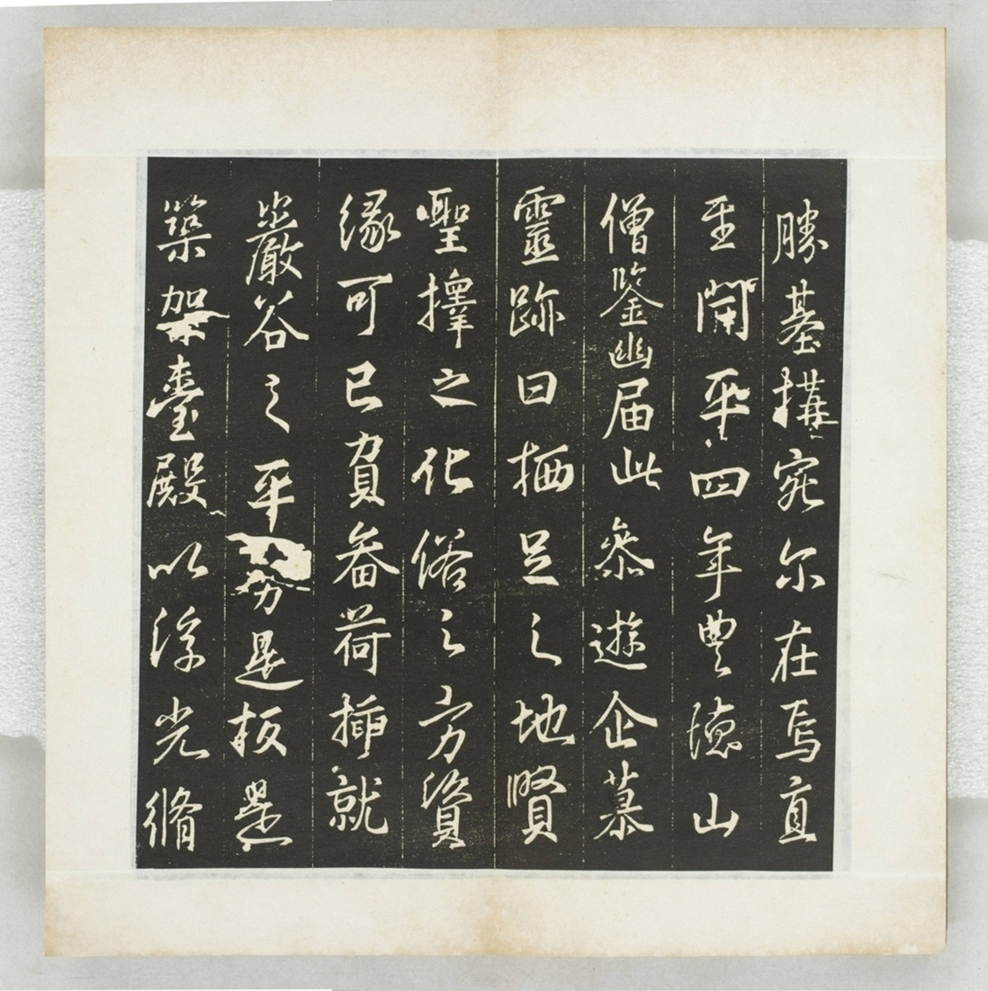 勝基搆宛尔在焉直
至開平四年豊德山
僧鑒幽届此叅遊企慕
靈跡曰栖足之地賢
聖擇之化俗之方資
縁可已負畚荷揷就
巖谷之平是板是
築架臺殿以浮光脩